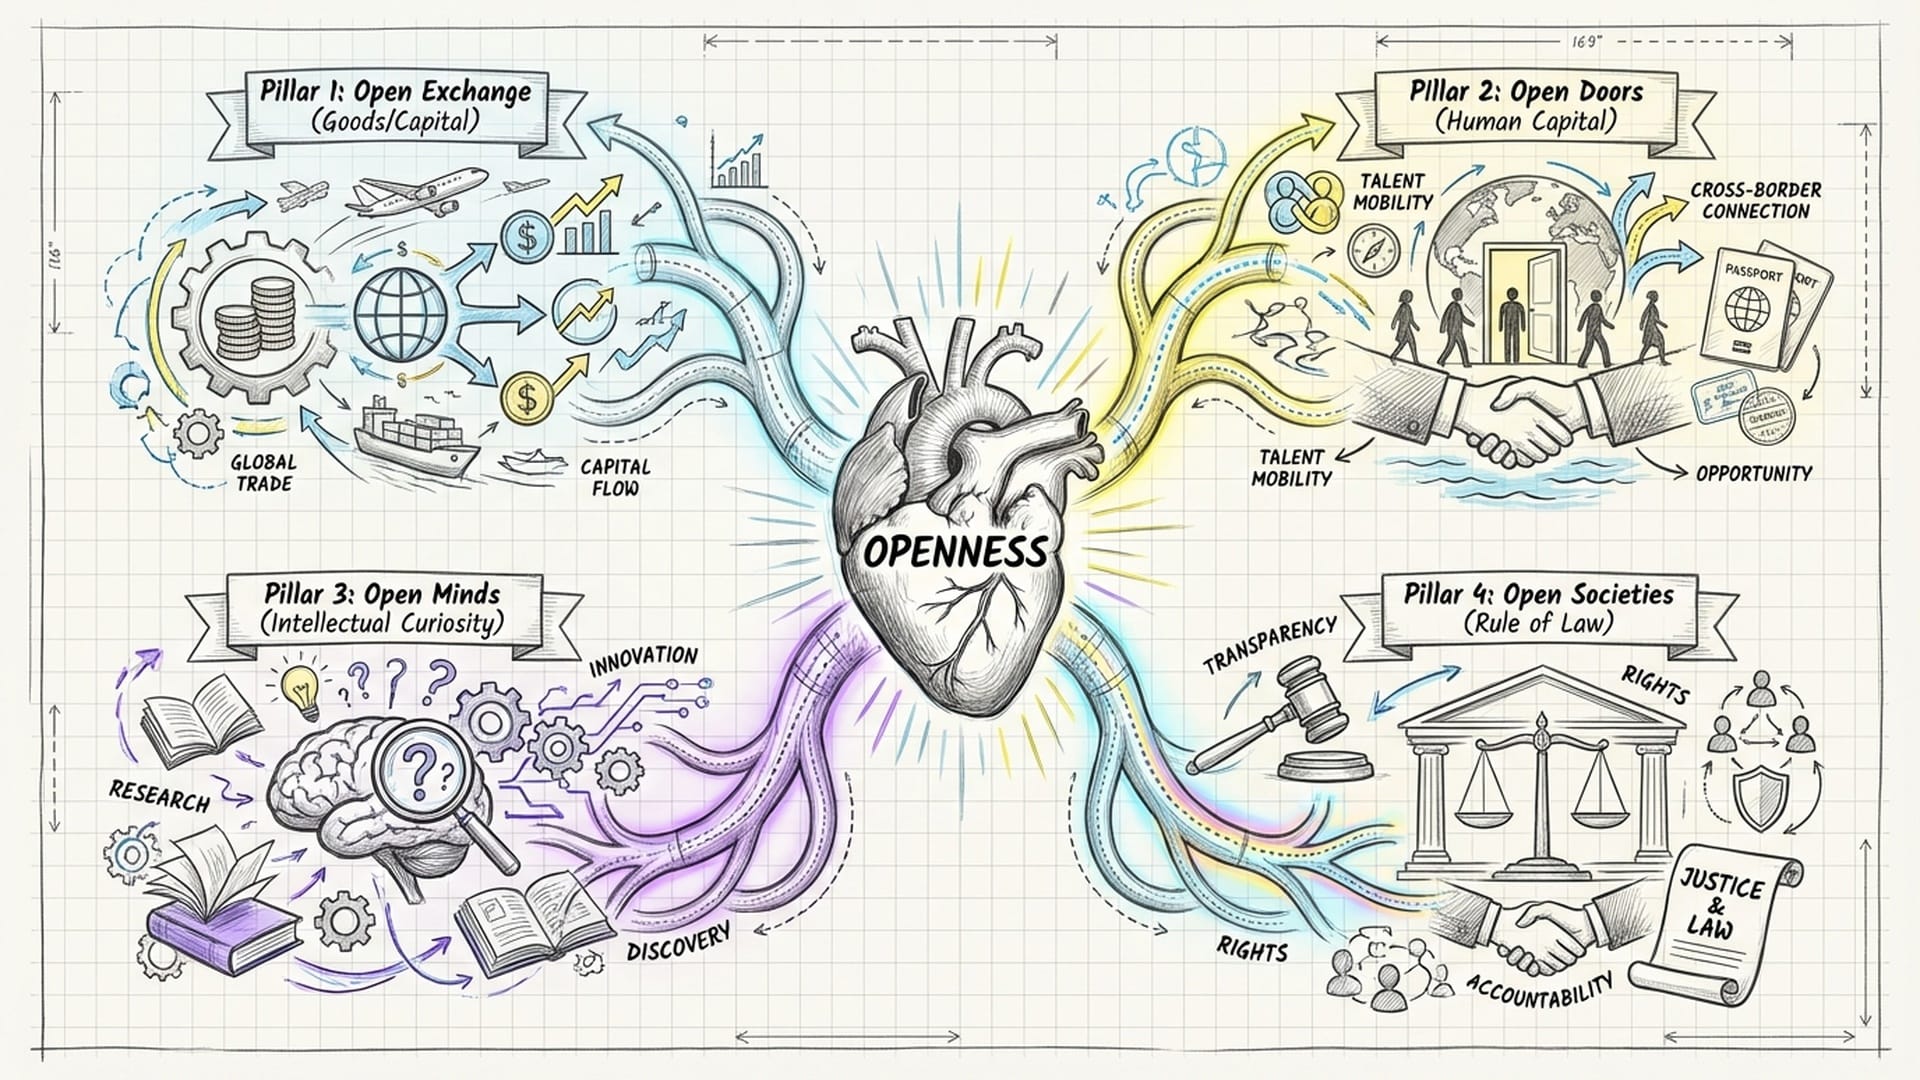 169"
Pillar 1: Open Exchange
(Goods/Capital)
$
$
$
$
GLOBAL
TRADE
CAPITAL
FLOW
Pillar 2: Open Doors
(Human Capital)
TALENT
MOBILITY
CROSS-BORDER
CONNECTION
PASSPORT
TALENT
MOBILITY
OPPORTUNITY
OPENNESS
Pillar 3: Open Minds
(Intellectual Curiosity)
INNOVATION
? ? ? ?
? ?
RESEARCH
DISCOVERY
Pillar 4: Open Societies
(Rule of Law)
TRANSPARENCY
RIGHTS
JUSTICE
&
LAW
RIGHTS
ACCOUNTABILITY